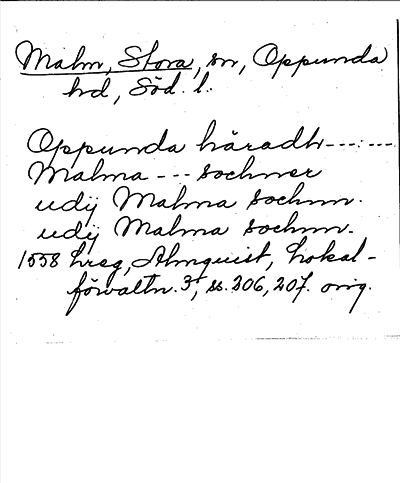 Malm, Stora, sn, Oppunda
hd, Söd. l.
Oppunda häradh---:---
Malma --- sochner
udij Malma sochnn.
udij Malma sochnn.
1558 hreg, Almquist, Lokal-
förvaltn. 3, ss. 206, 207. orig.